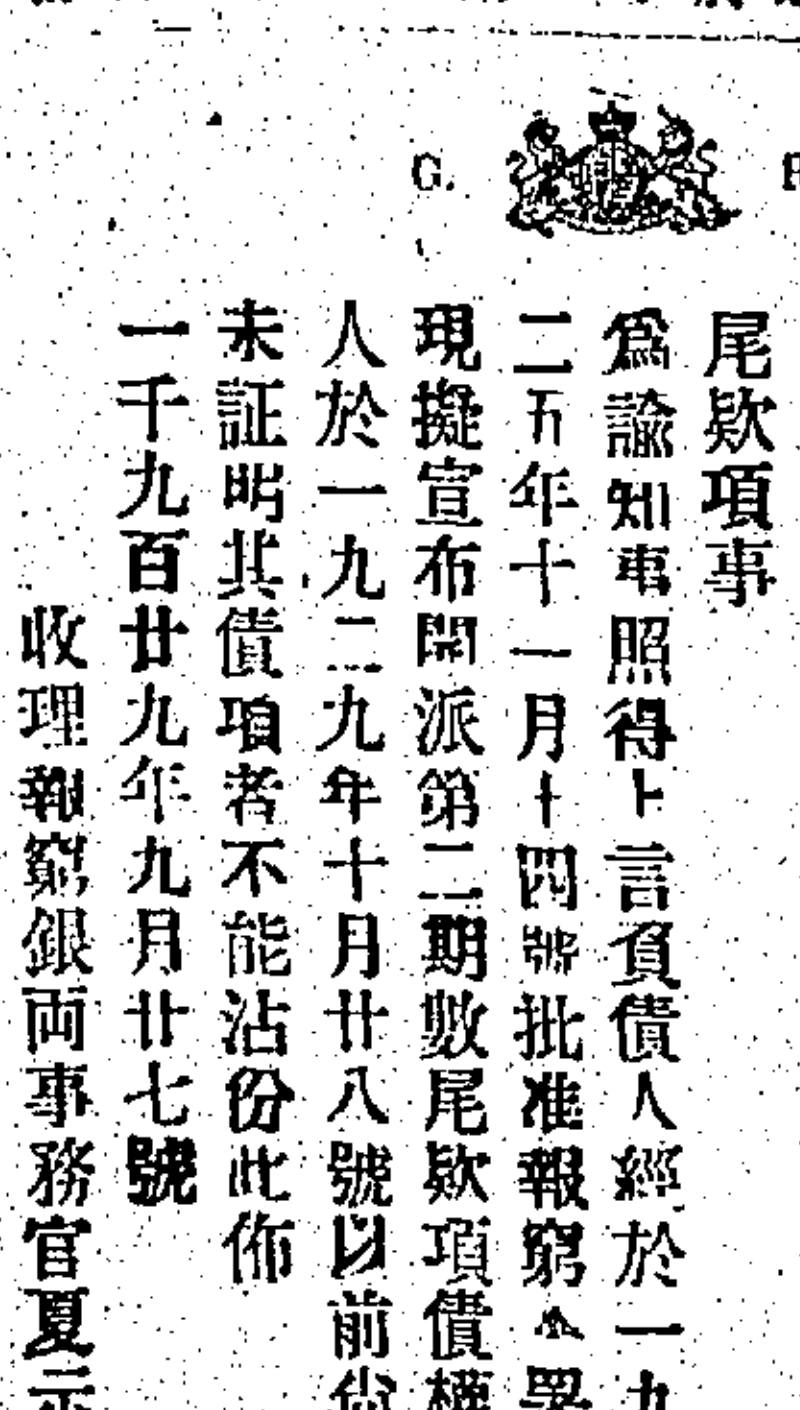 G.
尾欵項事
為諭知事照得上言負債人經於一九
二五年十一月十四號批准報窮令
現擬宣布開派第二期數尾欵項債權
人於一九二九年十月廿八號以前尚
未証明其債項者不能沾份此佈
一千九百廿九年九月廿七號
收理報窮銀両事務官夏示